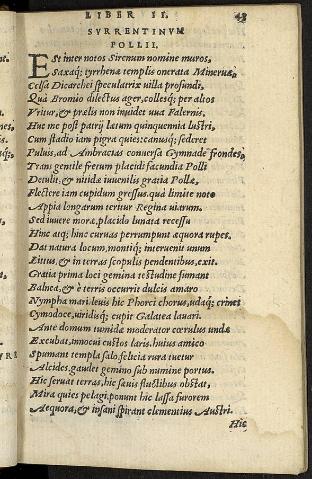 LIBER II. 43
SVRRENTINVM
POLLII.
ESt inter notos Sirenum nomine muros,
Saxaq; tyrrhenæ templis onerata Mineruæ,
Celsa Dicarchei speculatrix uilla profundi,
Quà Bromio dilectus ager, collesq; per altos
Vritur, & prælis non inuidet uua Falernis.
Huc me post patrij lætum quinquennia lustri,
Cum stadio iam pigra quies: canusq; sederet
Puluis, ad Ambracias conuersa Gymnade frondes,
Trans gentile fretum placidi facundia Polli
Detulit, & nitidæ iuuenilis gratia Pollæ,
Flectere iam cupidum gressus, quà limite noto
Appia longarum teritur Regina uiarum.
Sed iuuere moræ, placido lunata recessu
Hinc atq; hinc curuas perrumpunt æquora rupes.
Dat natura locum, montiq; interuenit unum
Littus, & in terras scopulis pendentibus, exit.
Gratia prima loci gemina testudine fumant
Balnea, & è terris occurrit dulcis amaro
Nympha mari. leuis hic Phorci chorus, udaq; crines
Cymodoce, uiridisq; cupit Galatea lauari.
Ante domum tumidæ moderator cœrulus undæ
Excubat, innocui custos laris. huius amico
Spumant templa salo. felicia rura tuetur
Alcides. gaudet gemino sub numine portus.
Hic seruat terras, hic sæuis fluctibus obstat,
Mira quies pelagi. ponunt hic lassa furorem
Aequora, & insani spirant clementius Austri.
Hic